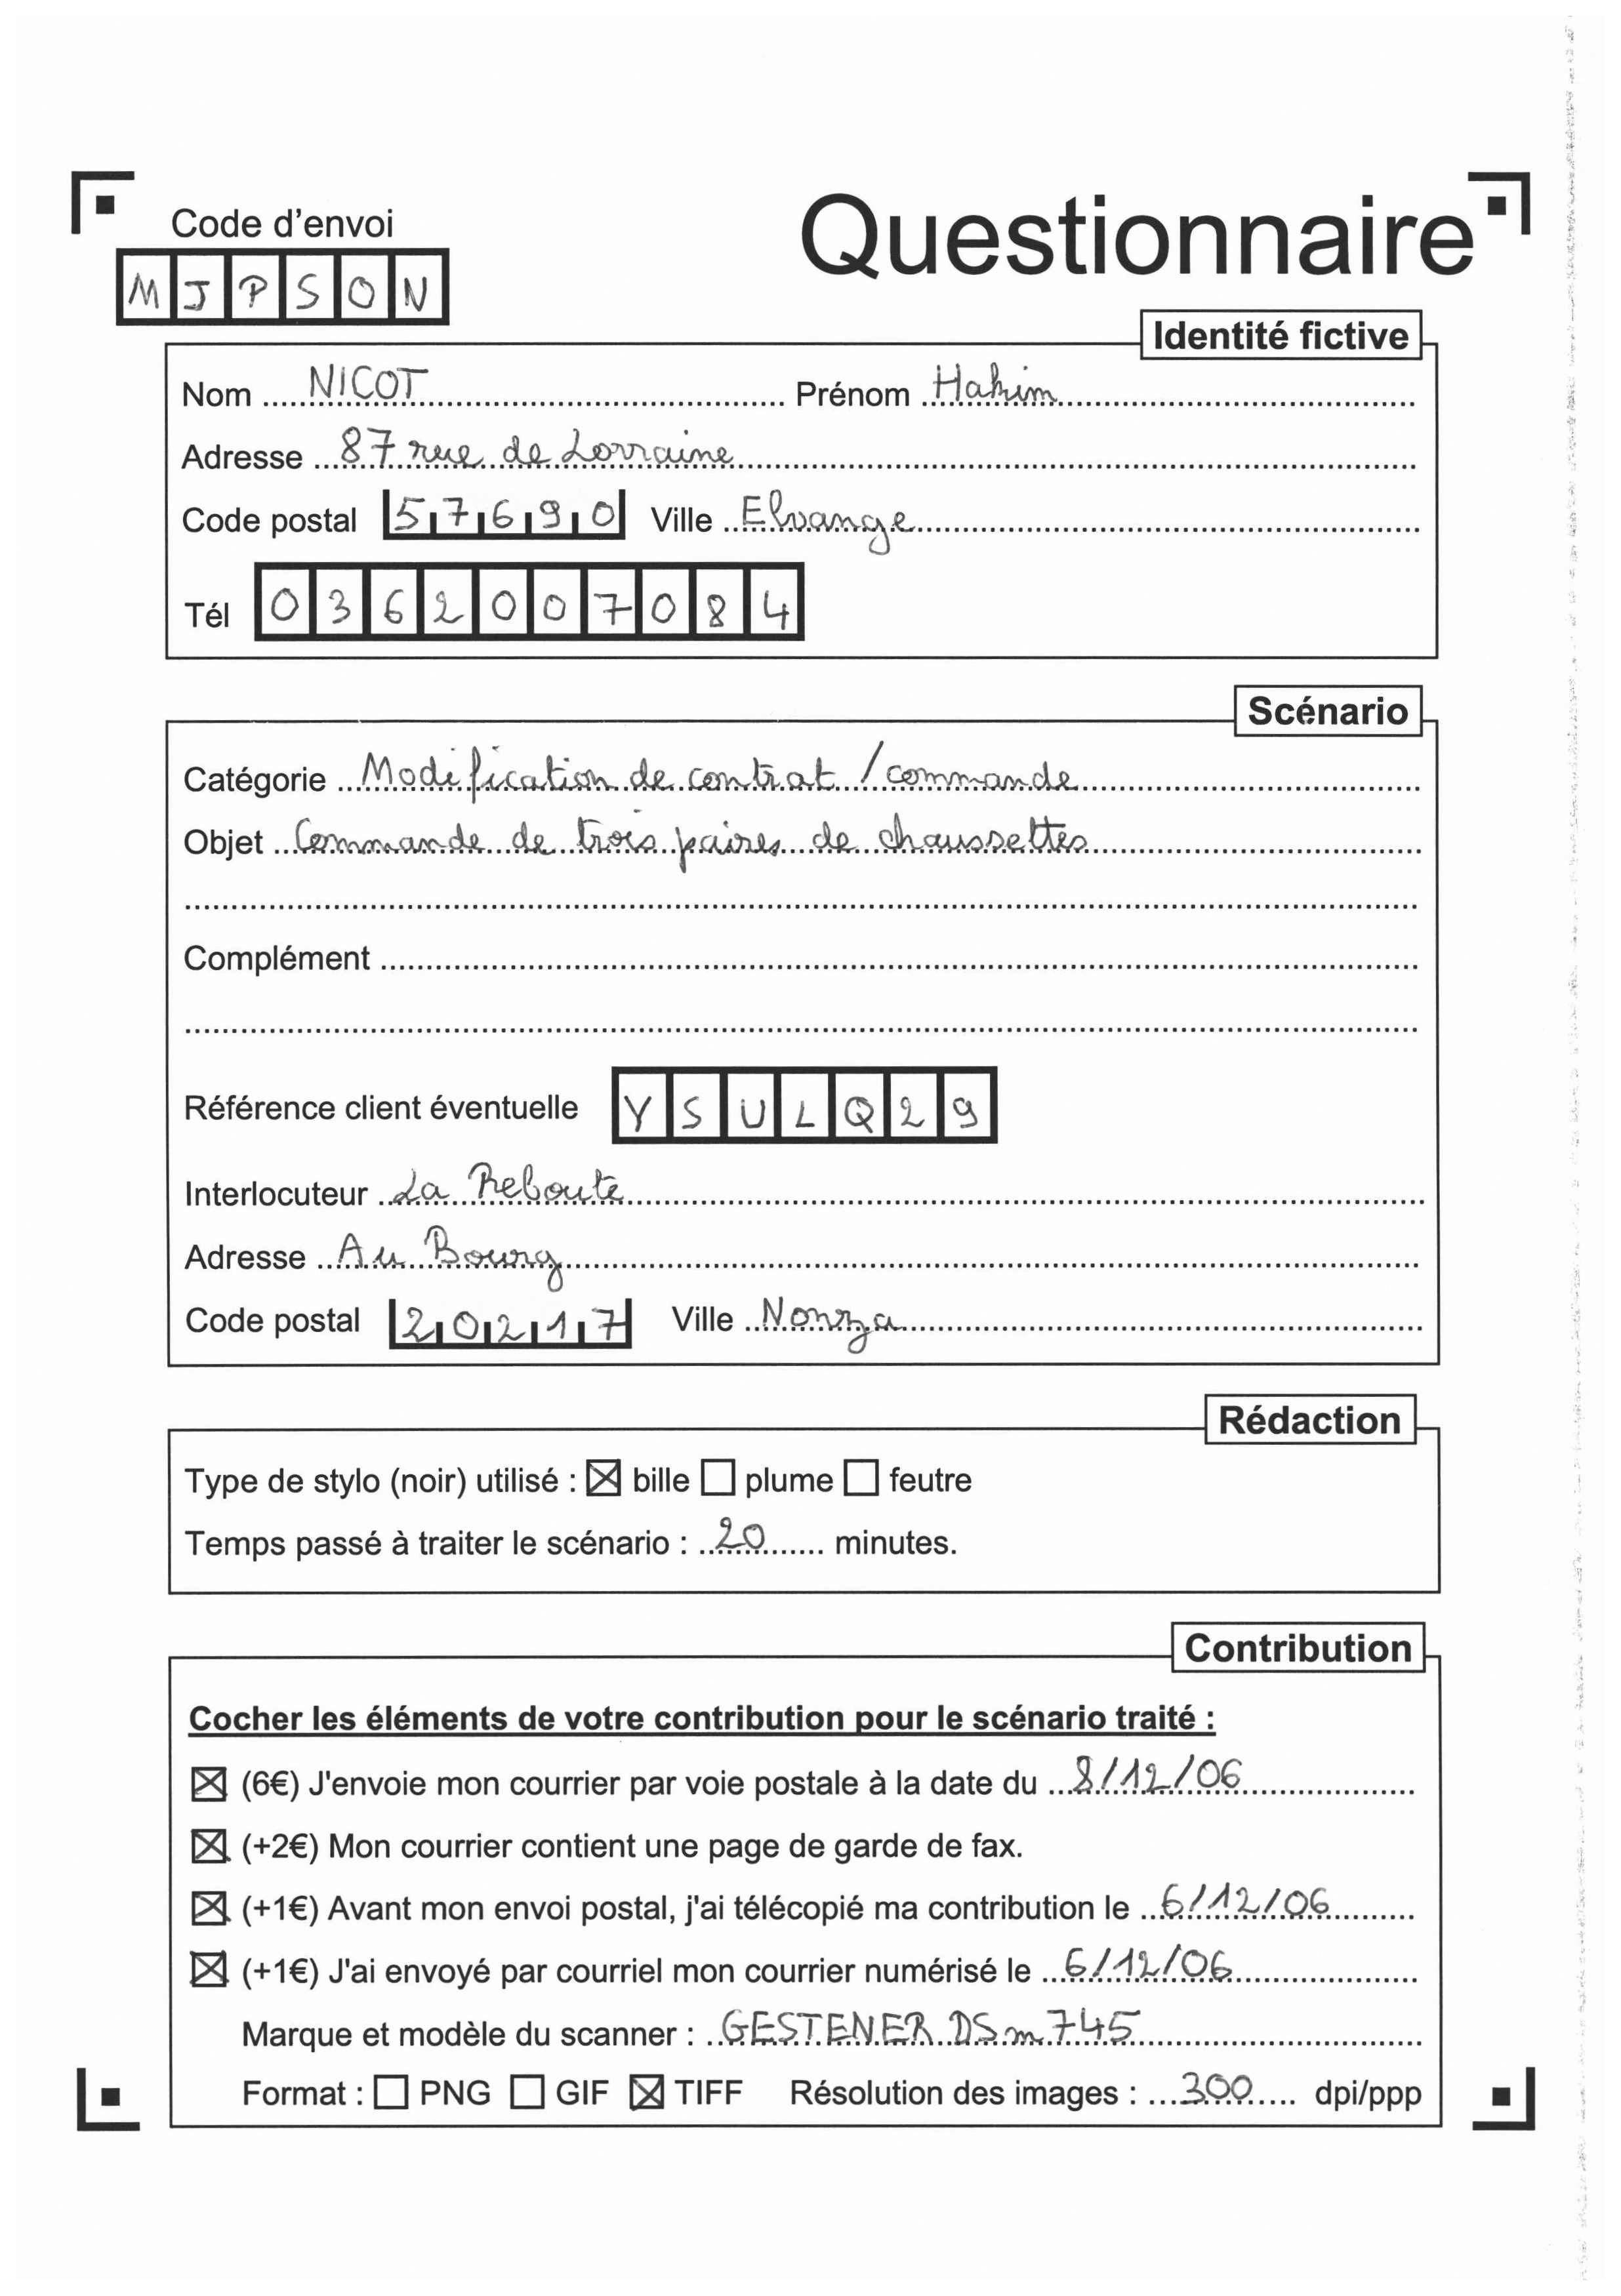 Code d'envoi
MJPSON
Questionnaire
Identité fictive
Nom NICOT Prénom Hakim
Adresse 87 rue de Lorraine
Code postal 57690 Ville Elvange
Tél 0362007084
Scénario
Catégorie Modification de contrat / commande
Objet Commande de trois paires de chaussettes
Complément
Référence client éventuelle YSULQ29
Interlocuteur La Reboute
Adresse Au Bourg
Code postal 20217 Ville Nonza
Rédaction
Type de stylo (noir) utilisé : ☒ bille ☐ plume ☐ feutre
Temps passé à traiter le scénario : 20 minutes.
Contribution
Cocher les éléments de votre contribution pour le scénario traité :
☒ (6€) J'envoie mon courrier par voie postale à la date du 8/12/06
☒ (+2€) Mon courrier contient une page de garde de fax.
☒ (+1€) Avant mon envoi postal, j'ai télécopié ma contribution le 6/12/06
☒ (+1€) J'ai envoyé par courriel mon courrier numérisé le 6/12/06
Marque et modèle du scanner : GESTENER DSm745
Format : ☐ PNG ☐ GIF ☒ TIFF Résolution des images : 300 dpi/ppp